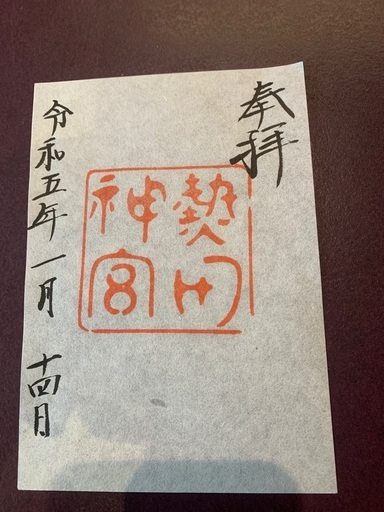 奉拝
熱田
神宮
令和五年一月十四日